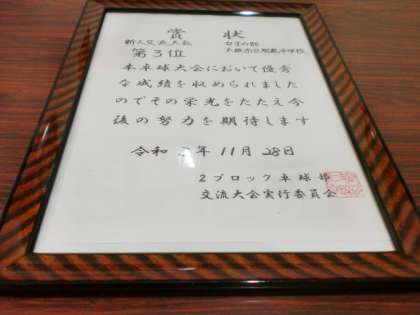 賞 状
新人交流大会 女子の部
第3位
本卓球大会において優秀
な成績を収められました
のでその栄光をたたえ今
後の努力を期待します
令和 年11月28日
2ブロック卓球部
交流大会実行委員会